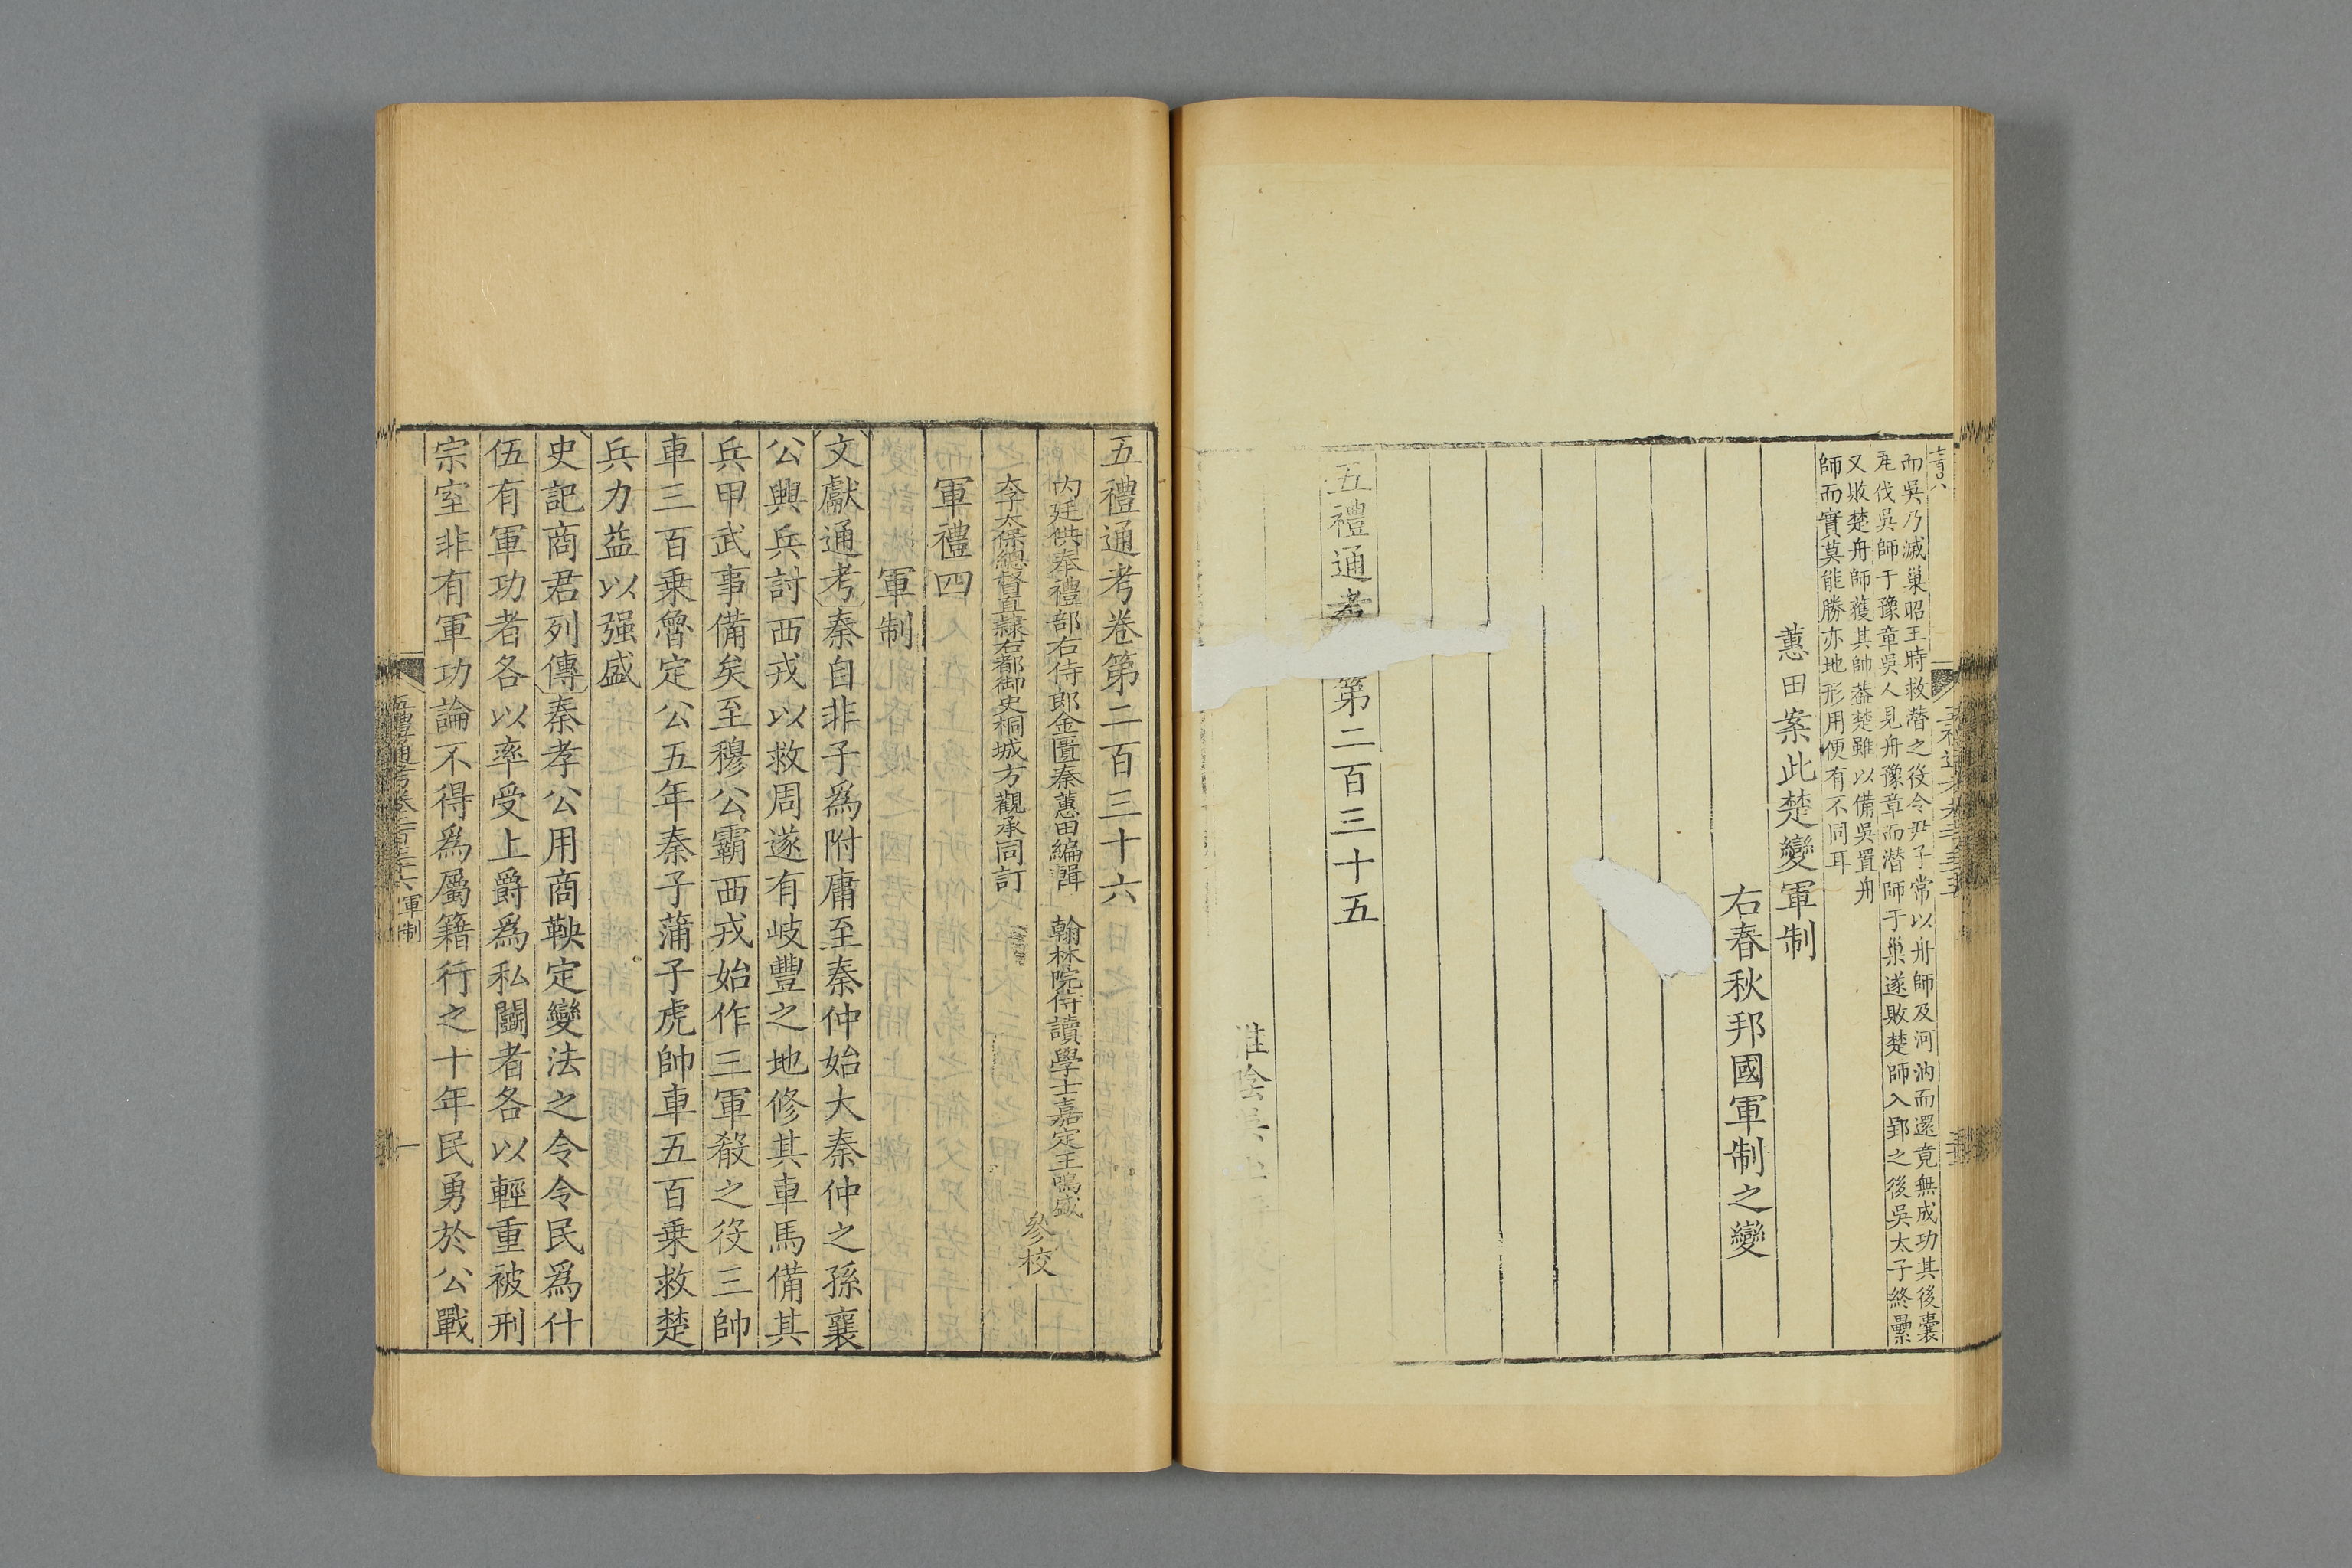 而吳乃滅巢昭王時救潛之役令尹子常以舟師及河汭而還竟無成功其後囊
瓦伐吳師于豫章吳人見舟豫章而潛師于巢遂敗楚師入郢之後吳太子終纍
又敗楚舟師獲其帥蓋楚雖以備吳置舟
師而實莫能勝亦地形用便有不同耳
蕙田案此楚變軍制
右春秋邦國軍制之變
五禮通考
第二百三十五
五禮通考卷第二百三十六
內廷供奉禮部右侍郎金匱秦蕙田編輯 翰林院侍讀學士嘉定王鳴盛
太子太保總督直隸右都御史桐城方觀承同訂
參校
軍禮四
軍制
文獻通考秦自非子爲附庸至秦仲始大秦仲之孫襄
公興兵討西戎以救周遂有岐豐之地修其車馬備其
兵甲武事備矣至穆公霸西戎始作三軍殽之役三帥
車三百乗魯定公五年秦子蒲子虎帥車五百乗救楚
兵力益以强盛
史記商君列傳秦孝公用商鞅定變法之令令民爲什
伍有軍功者各以率受上爵爲私鬭者各以輕重被刑
宗室非有軍功論不得爲屬籍行之十年民勇於公戰
五禮通考卷二百三十六 軍制
一